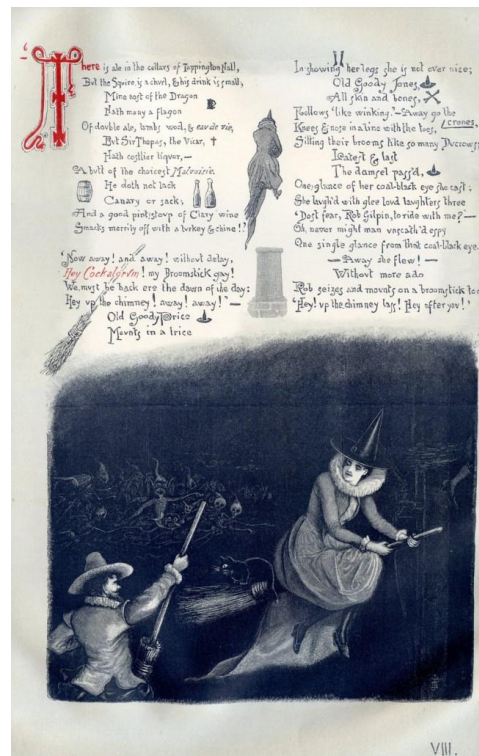 There is ale in the cellars of Tappington Hall,
But the Squire is a churl, & his drink is small;
Mine host of the Dragon
Hath many a flagon
Of double ale, lambs wool, & eau de vie,
But Sir Thopas, the Vicar,
Hath costlier liquor,—
A butt of the choicest Malvoisie.
He doth not lack
Canary or sack;
And a good pint stoup of Clary wine
Smacks merrily off with a turkey & chine!?
'Now away! and away! without delay,
Hey Cockalorum! my Broomstick gay!
We must be back ere the dawn of the day:
Hey up the chimney! away! away!'—
Old Goody Price
Mounts in a trice
In showing her legs she is not over nice;
Old Goody Jones,
All skin and bones,
Follows 'like winking.'—Away go the
crones,
Knees & nose in a line with the toes,
Sitting their brooms like so many Ducrows;
Latest & last
The damsel pass'd,
One glance of her coal-black eye she cast;
She laugh'd with glee loud laughters three
'Dost fear, Rob Gilpin, to ride with me?'—
Oh, never might man unscath'd espy
One single glance from that coal-black eye.
—Away she flew!—
Without more ado
Rob seizes and mounts on a broomstick too
'Hey! up the chimney lass! Hey after you!'
VIII.